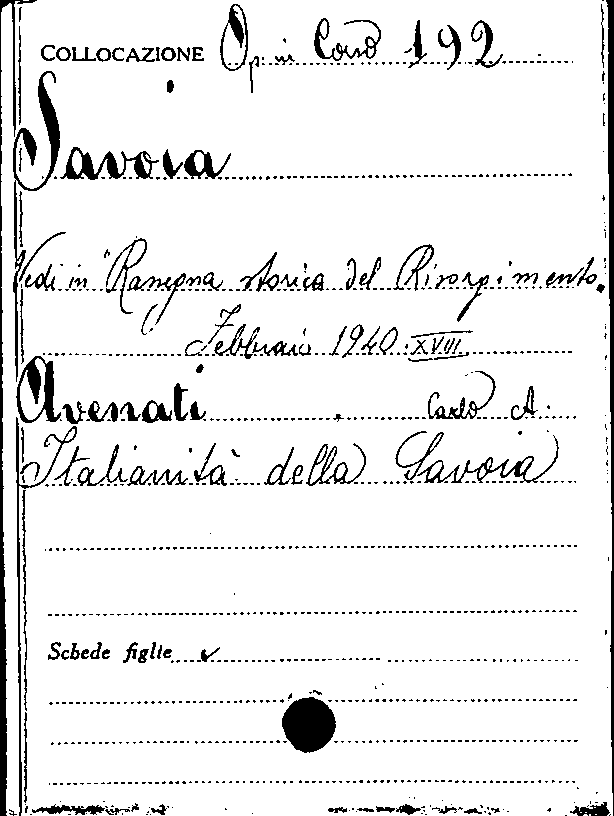 COLLOCAZIONE Op. in Cons 192
Savoia
Vedi in "Rassegna storica del Risorgimento.
Febbraio 1940. XVIII
Avenati Carlo A.
Italianità della Savoia
Schede figlie ✓